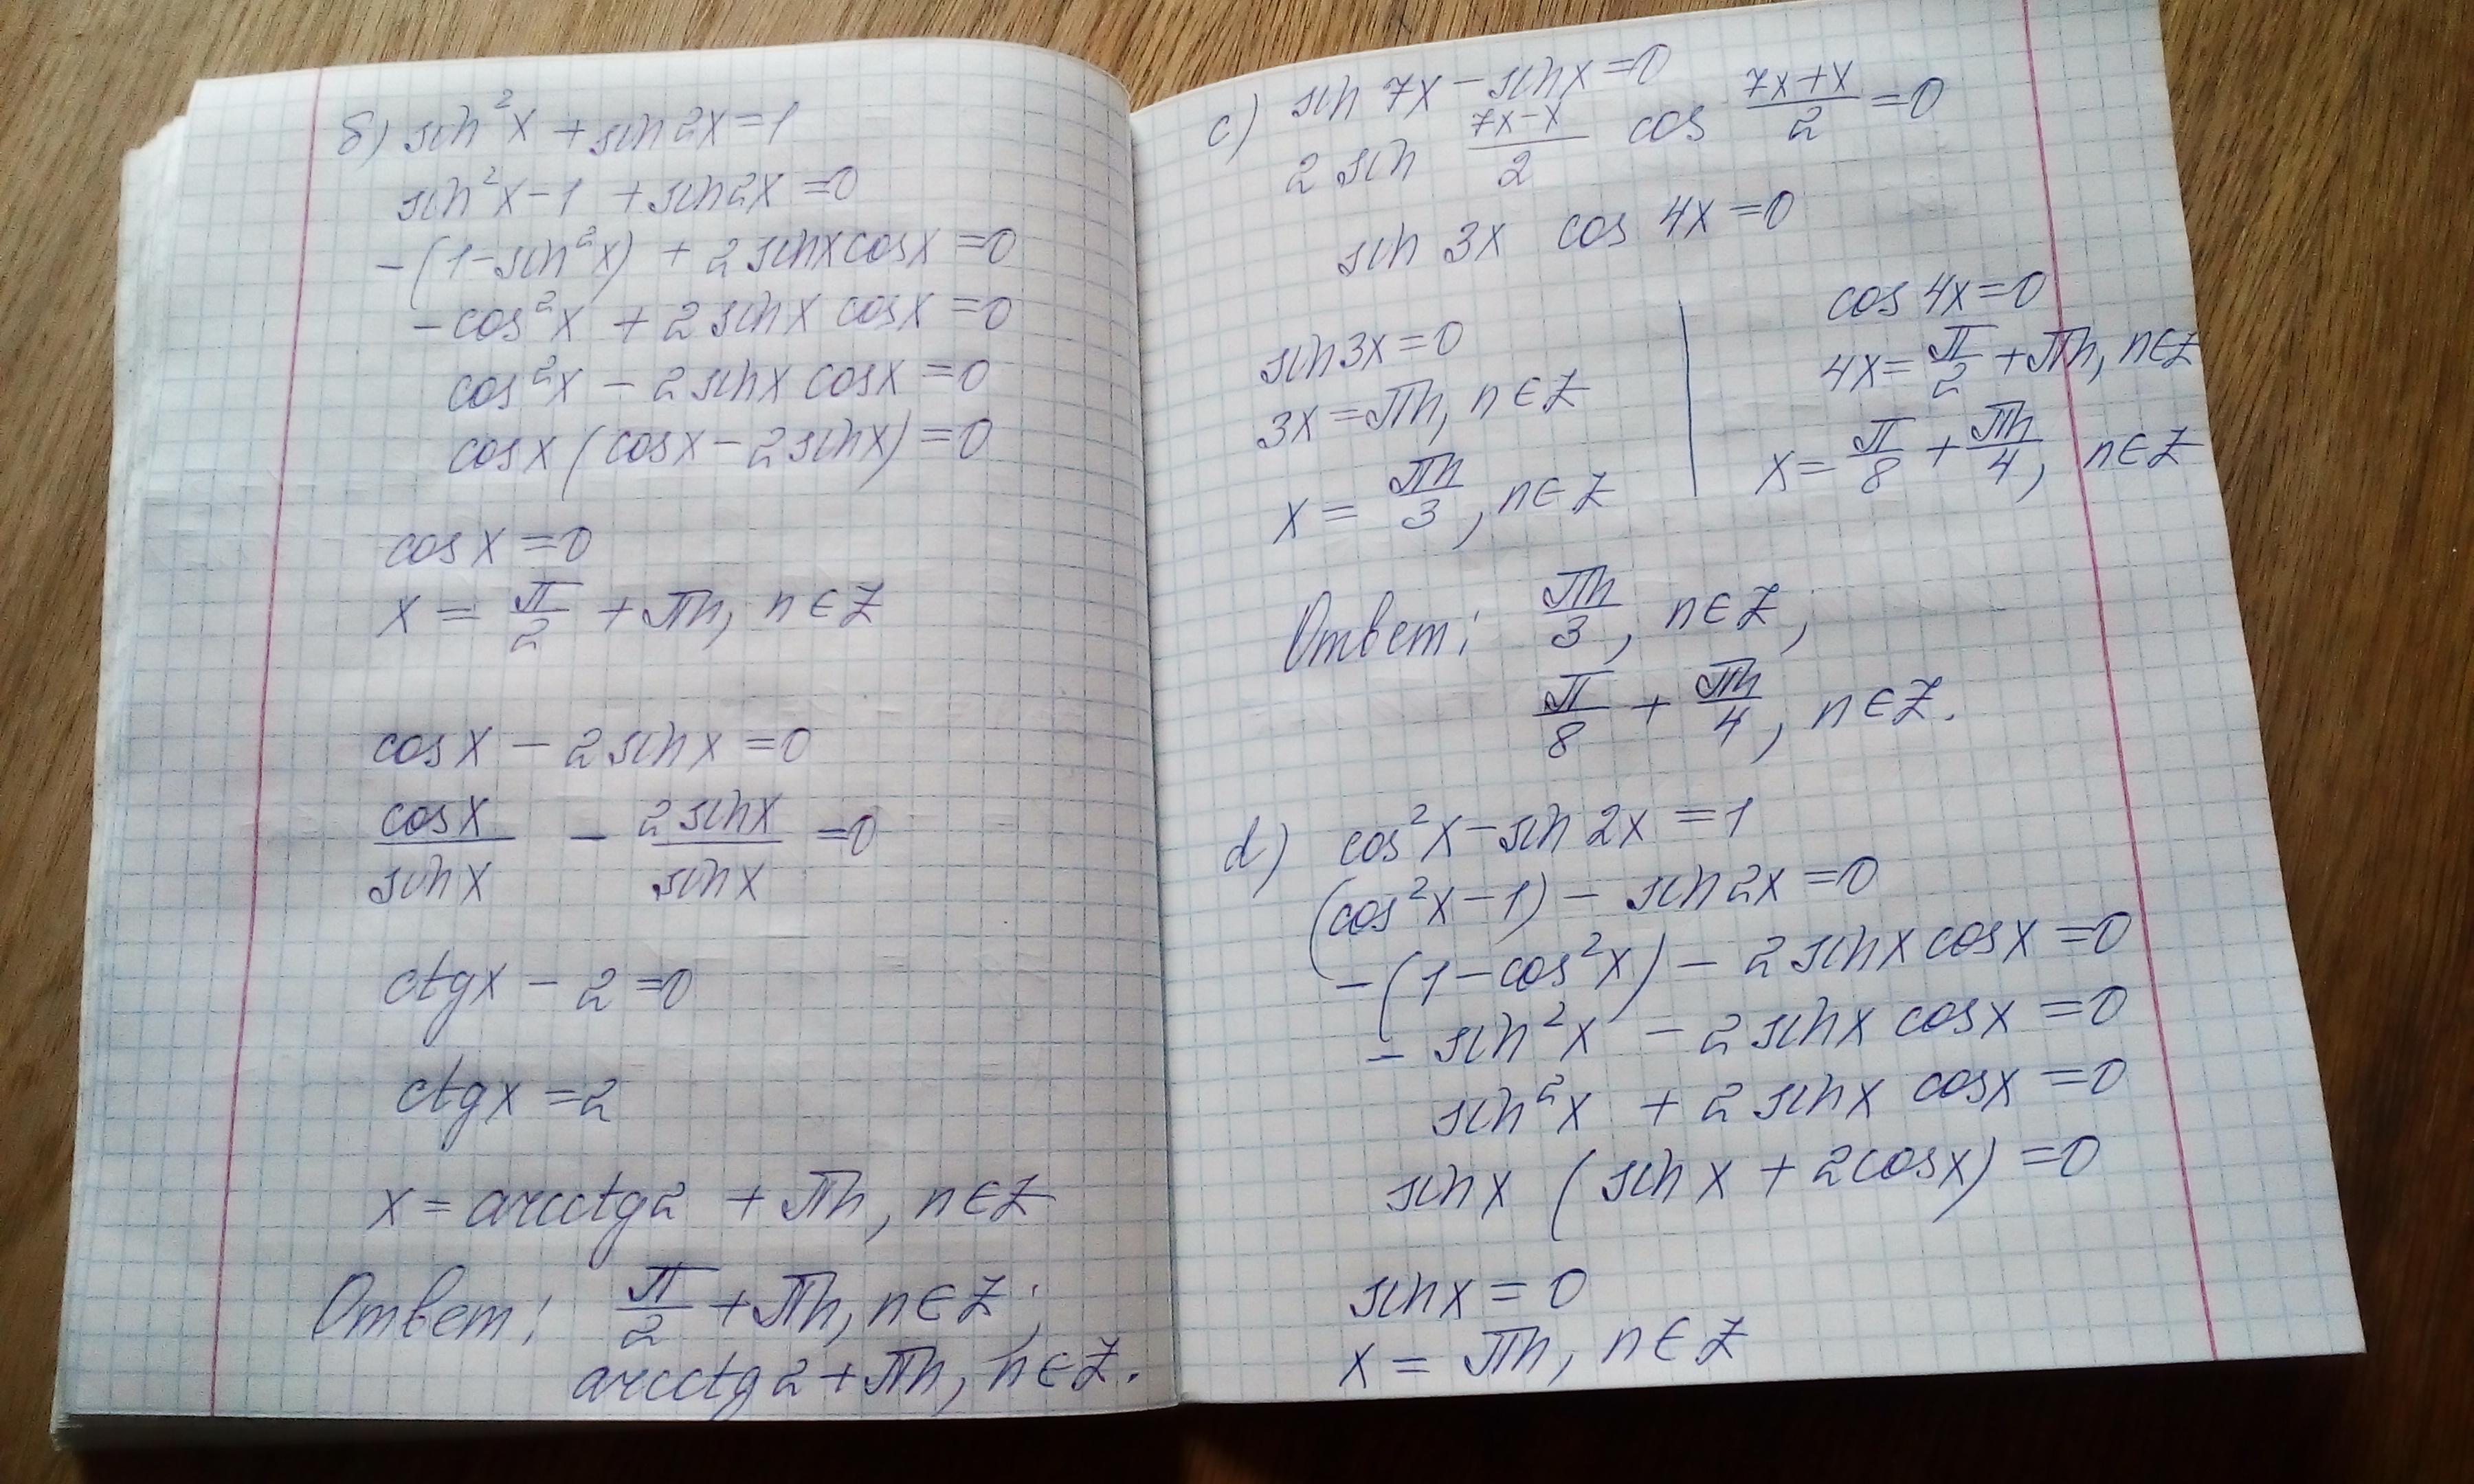 б) sin²x + sin2x = 1
sin²x - 1 + sin2x = 0
-(1 - sin²x) + 2sinxcosx = 0
-cos²x + 2sinx cosx = 0
cos²x - 2sinx cosx = 0
cosx (cosx - 2sinx) = 0
cosx = 0
x = π/2 + πn, n∈Z
cosx - 2sinx = 0
cosx/sinx - 2sinx/sinx = 0
ctgx - 2 = 0
ctgx = 2
x = arcctg2 + πn, n∈Z
Ответ: π/2 + πn, n∈Z;
arcctg2 + πn, n∈Z.
c) sin 7x - sinx = 0
2 sin (7x-x)/2 cos (7x+x)/2 = 0
sin 3x cos 4x = 0
sin3x = 0
3x = πn, n∈Z
x = πn/3, n∈Z
cos 4x = 0
4x = π/2 + πn, n∈Z
x = π/8 + πn/4, n∈Z
Ответ: πn/3, n∈Z;
π/8 + πn/4, n∈Z.
d) cos²x - sin 2x = 1
(cos²x - 1) - sin2x = 0
-(1 - cos²x) - 2sinx cosx = 0
- sin²x - 2sinx cosx = 0
sin²x + 2sinx cosx = 0
sinx (sinx + 2cosx) = 0
sinx = 0
x = πn, n∈Z